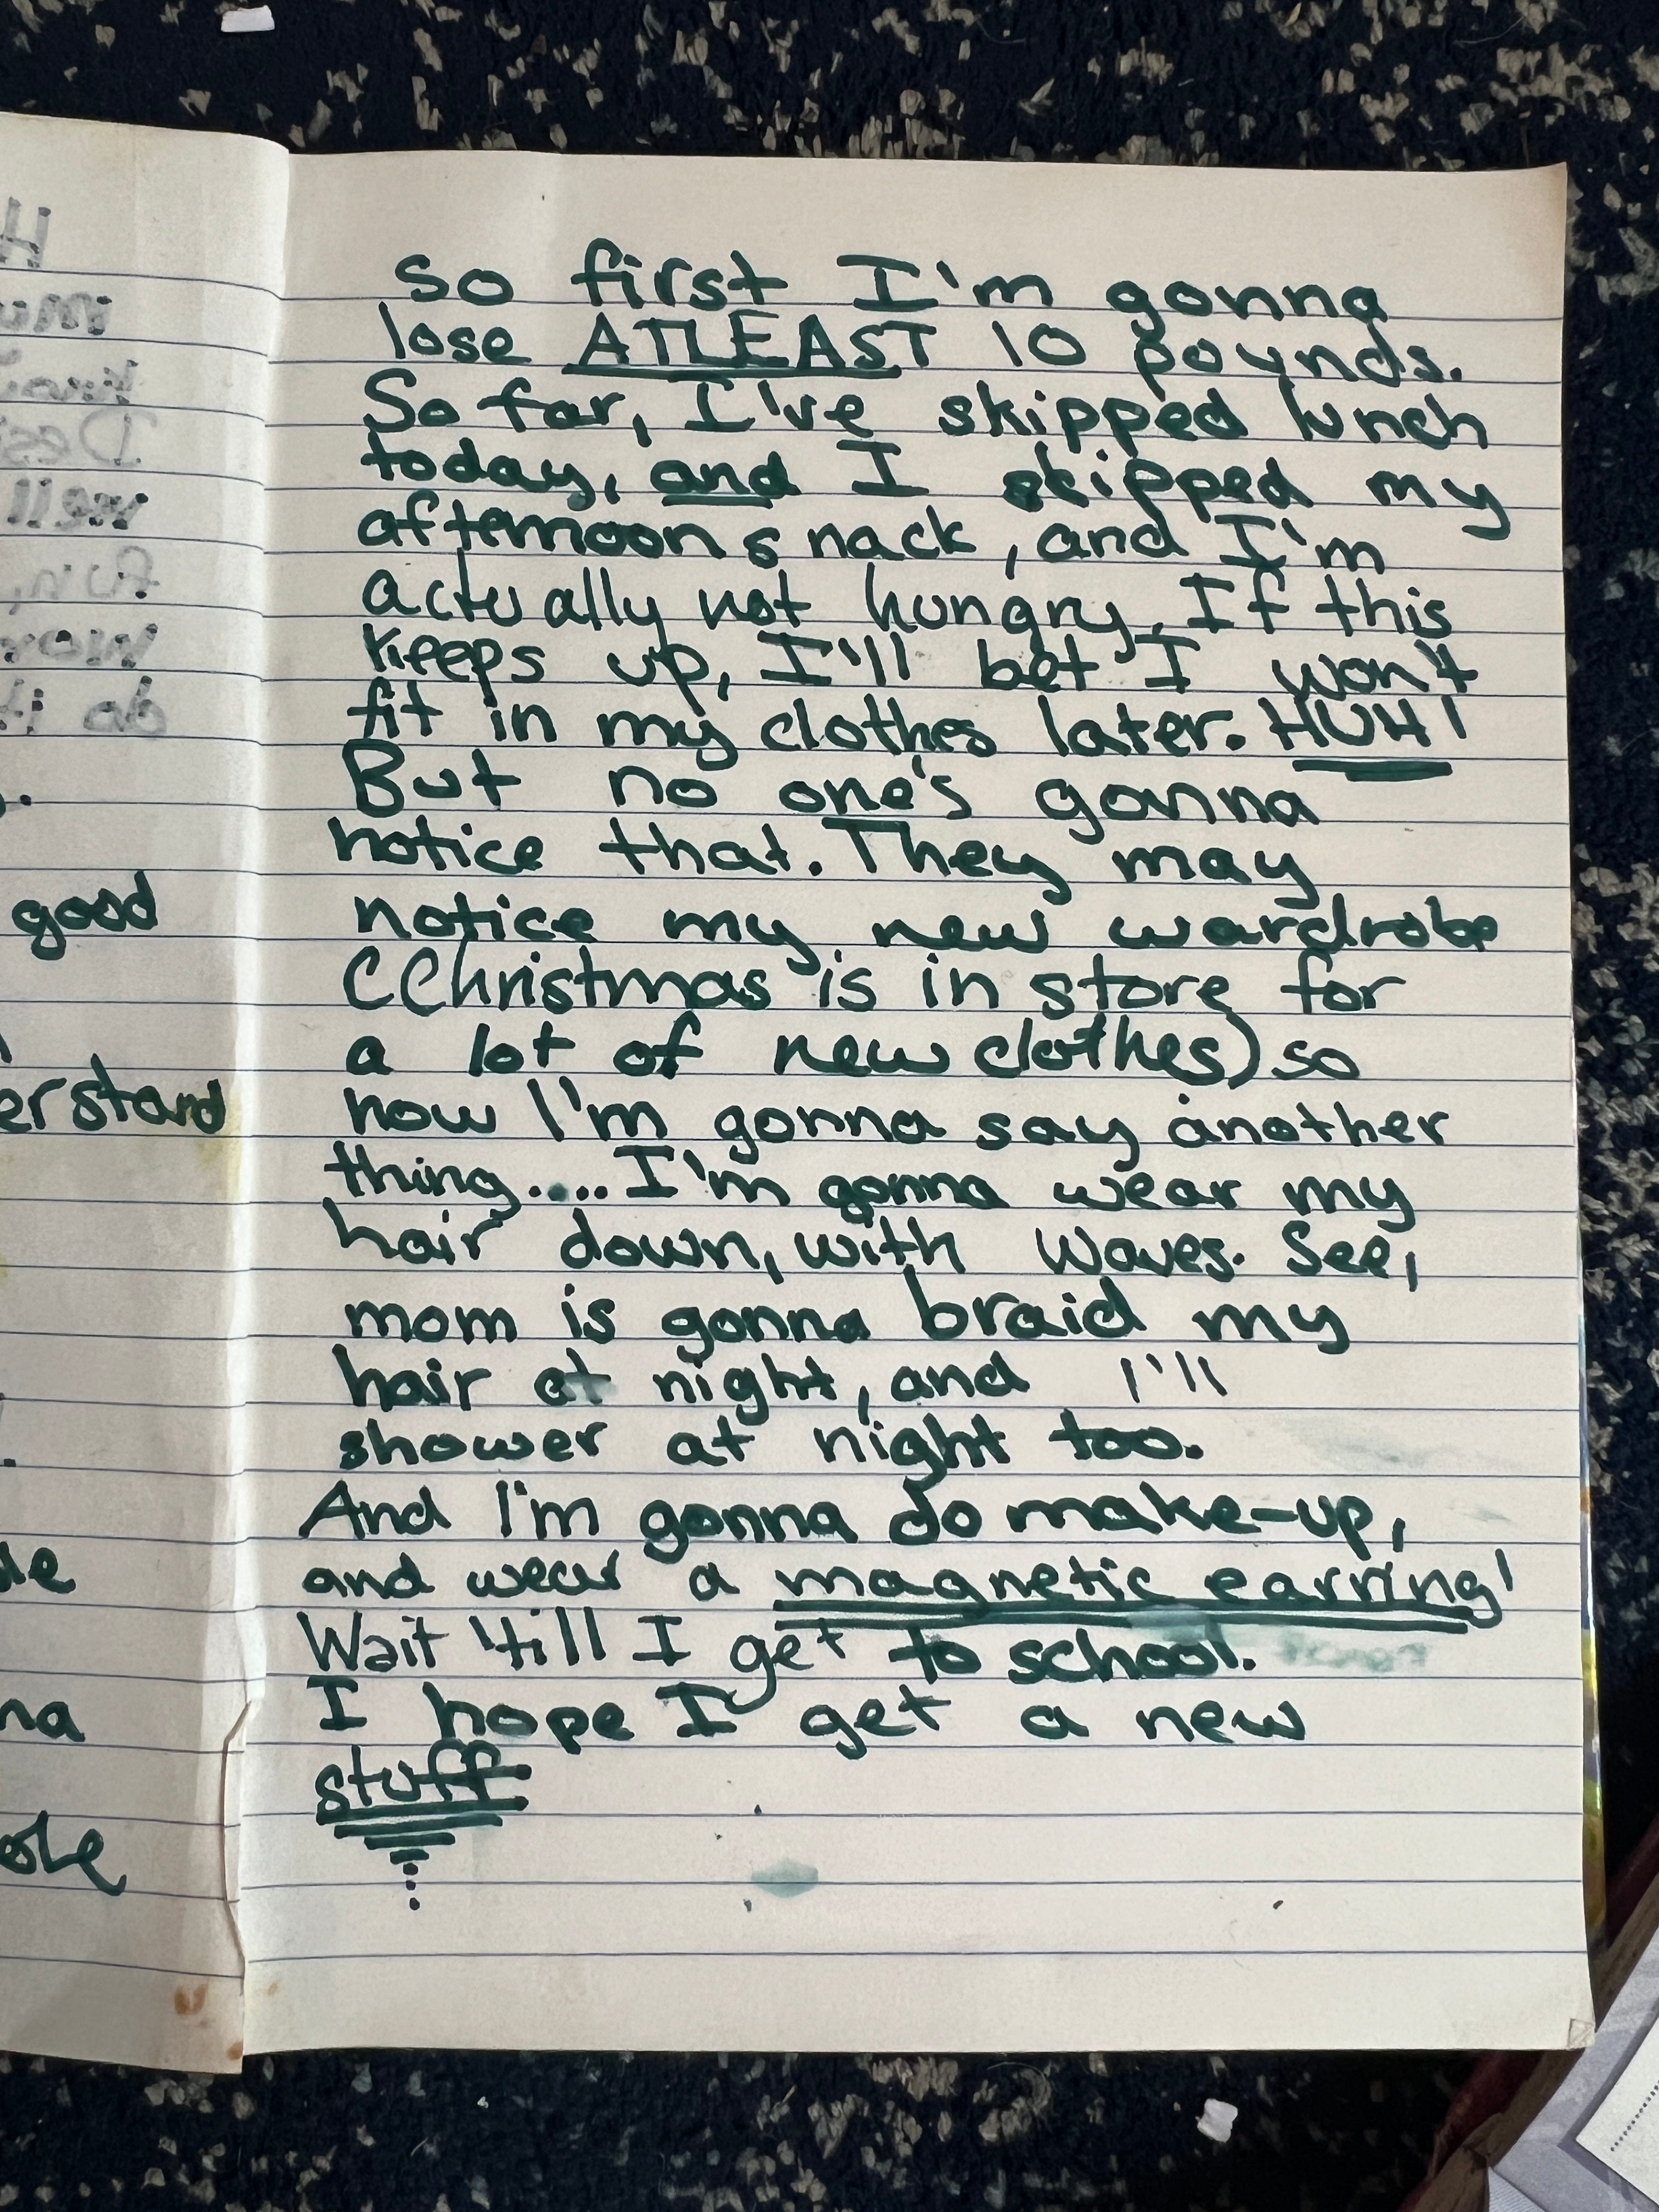 good
erstand
so first I'm gonna
lose ATLEAST 10 pounds.
So far, I've skipped lunch
today, and I skipped my
afternoon snack, and I'm
actually not hungry. If this
keeps up, I'll bet I won't
fit in my clothes later. HUH!
But no one's gonna
notice that. They may
notice my new wardrobe
(Christmas is in store for
a lot of new clothes) so
now I'm gonna say another
thing.... I'm gonna wear my
hair down, with waves. See,
mom is gonna braid my
hair at night, and I'll
shower at night too.
And I'm gonna do make-up,
and wear a magnetic earring!
Wait 'till I get to school.
I hope I get a new
stuff